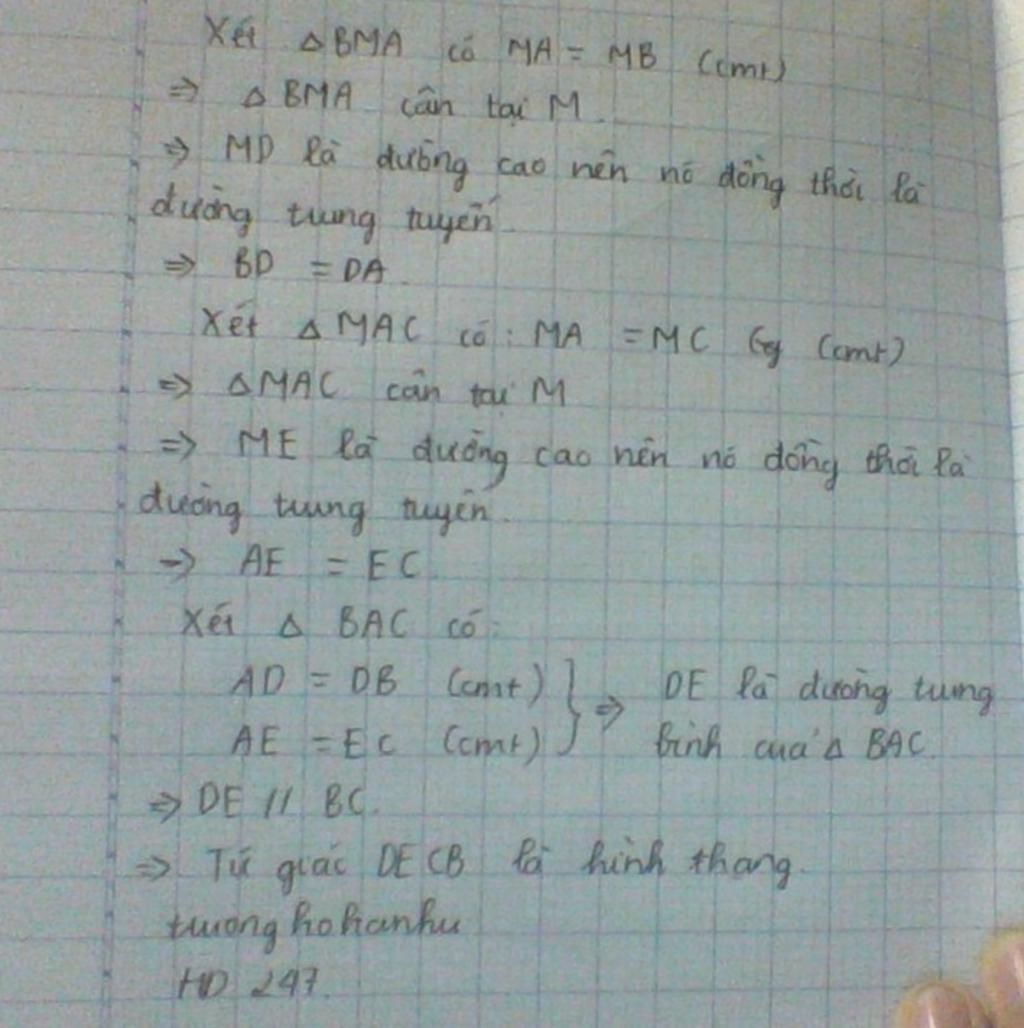 Xét Δ BMA có MA = MB (cmt)
=> Δ BMA cân tại M.
=> MD là đường cao nên nó đồng thời là
đường trung tuyến.
=> BD = DA.
Xét Δ MAC có: MA = MC (cmt)
=> ΔMAC cân tại M
=> ME là đường cao nên nó đồng thời là
đường trung tuyến.
=> AE = EC.
Xét Δ BAC có:
AD = DB (cmt) } => DE là đường trung
AE = EC (cmt) } bình của Δ BAC.
=> DE // BC.
=> Tứ giác DECB là hình thang.
truonghohanhu
HD 247.